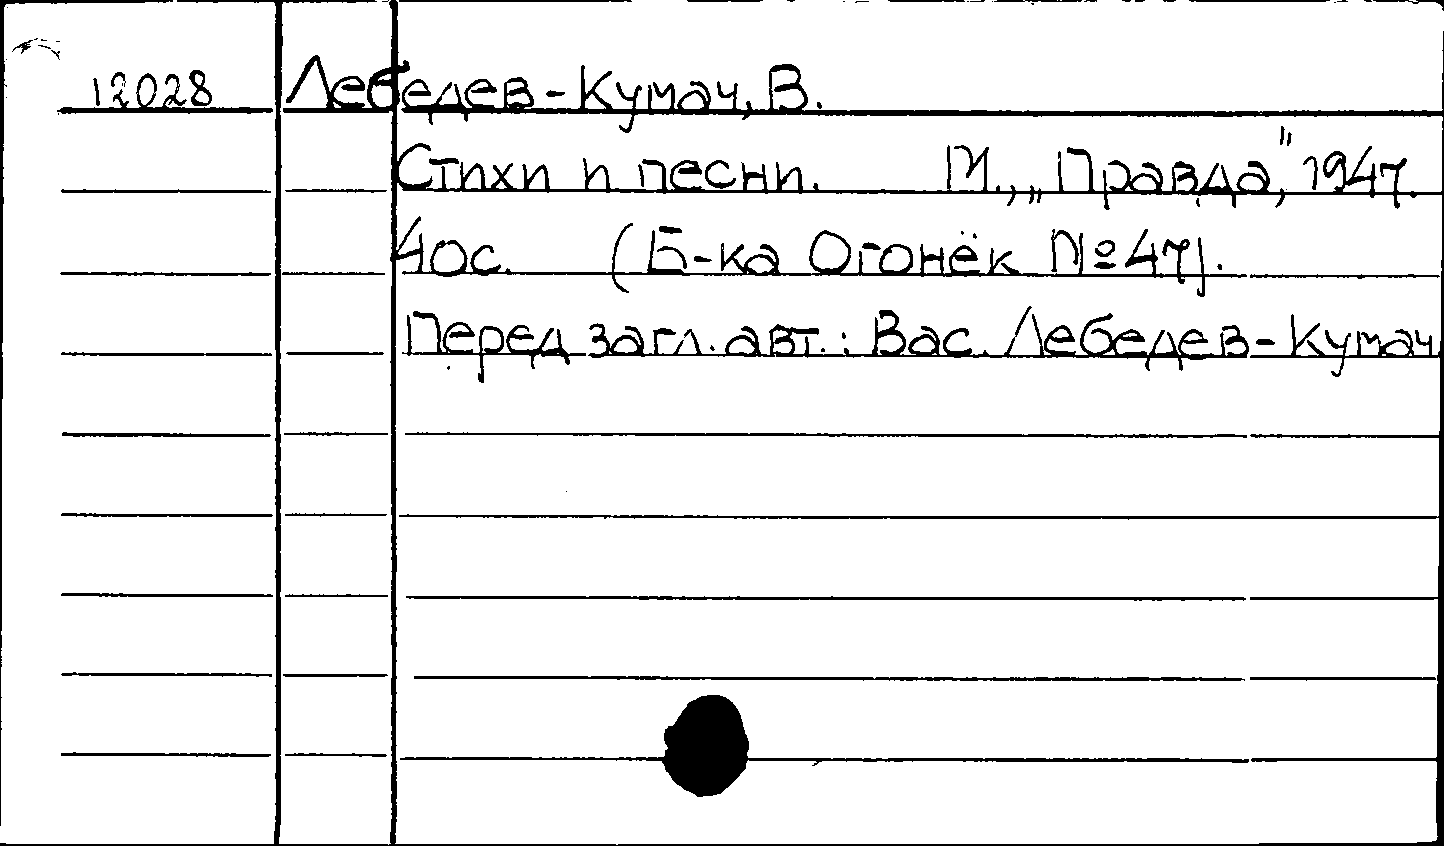 12028 Лебедев-Кумач, В.
Стихи и песни. М., „Правда", 1947.
40с. (Б-ка Огонёк №47).
Перед загл. авт.: Вас. Лебедев-Кумач